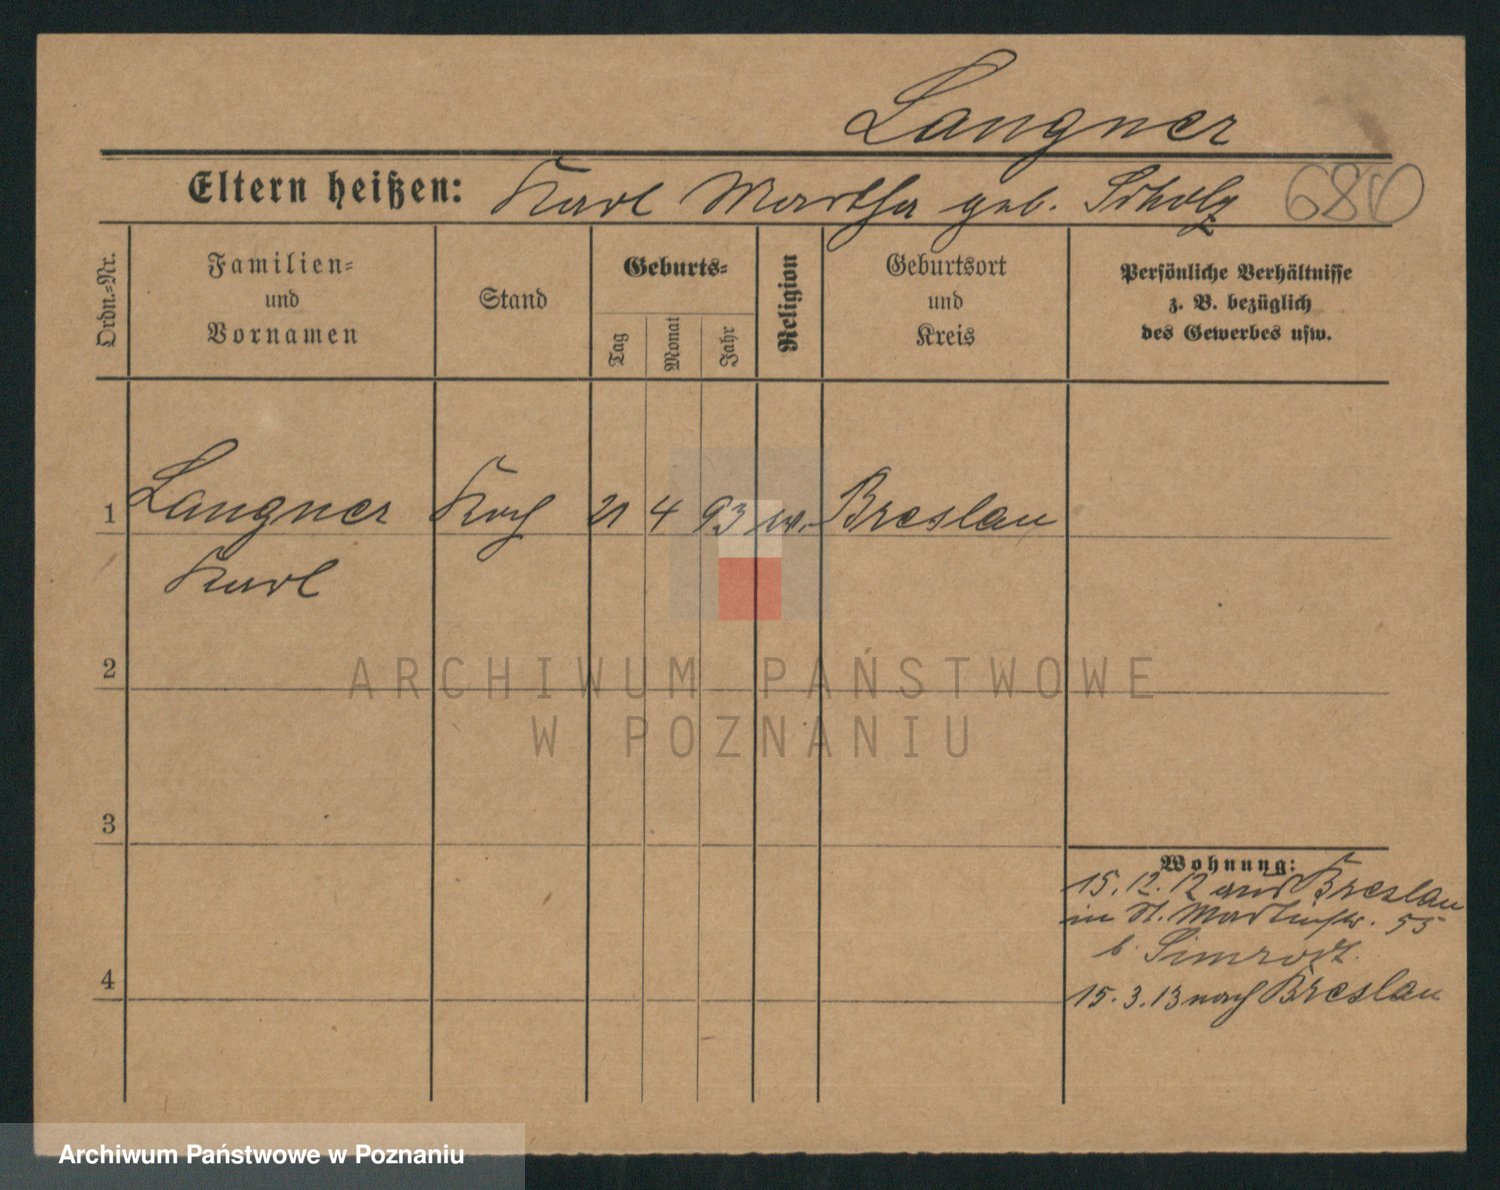 Langner
Eltern heißen: Karl Martha geb. Scholz 680
Ordn.=Nr.
Familien=
und
Vornamen
Stand
Geburts=
Tag
Monat
Jahr
Religion
Geburtsort
und
Kreis
Persönliche Verhältnisse
z. B. bezüglich
des Gewerbes usw.
1 Langner Koch 21 4 93 Breslau
Karl
2
3
4
Wohnung:
15.12.12 aus Breslau
in St. Martinstr. 55
b.
15.3.13 nach Breslau
ARCHIWUM PAŃSTWOWE
W POZNANIU
Archiwum Państwowe w Poznaniu